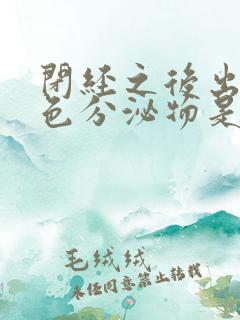 閉經之後出
色分泌物是
毛绒绒
未经同意禁止转载